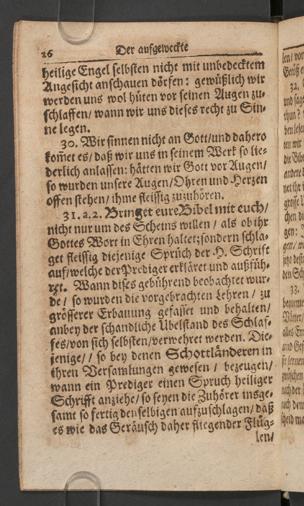 26 Der aufgeweckte
heilige Engel selbsten nicht mit unbedecktem
Angesicht anschauen dörfen: gewüßlich wir
werden uns wol hüten vor seinen Augen zu-
schlaffen/ wann wir uns dieses recht zu Sin-
ne legen.
30. Wir sinnen nicht an Gott/ und dahero
kom̃et es/ daß wir uns in seinem Werk so lie-
derlich anlassen: hätten wir Gott vor Augen/
so wurden unsere Augen/ Ohren und Herzen
offen stehen/ ihme fleissig zuzuhören.
31. 2. 2. Bringet eure Bibel mit euch/
nicht nur um des Scheins willen/ als ob ihr
Gottes Wort in Ehren haltet; sondern schla-
get fleissig diejenige Sprüch der H. Schrift
auf/ welche der Prediger erkläret und ausfüh-
ret. Wann dises gebührend beobachtet wur-
de/ so wurden die vorgebrachten Lehren/ zu
grösserer Erbauung gefasset und behalten/
anbey der schandliche Übelstand des Schlaf-
fes/ von sich selbsten/ verwehret werden. Die-
jenige/ so bey denen Schottländeren in
ihren Versamlungen gewesen/ bezeugen/
wann ein Prediger einen Spruch heiliger
Schrifft anziehe/ so seyen die Zuhörer insge-
samt so fertig denselbigen aufzuschlagen/ daß
es wie das Geräusch daher fliegender Flüg-
len/